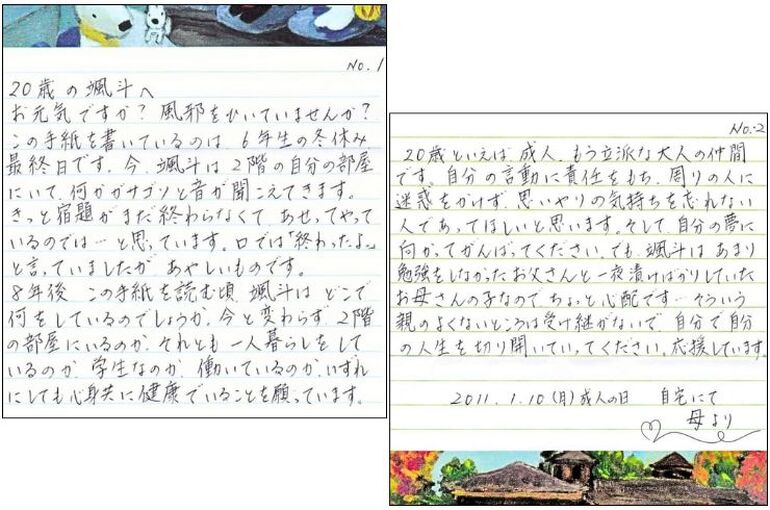 No. 1
20歳の颯斗へ
お元気ですか？風邪をひいていませんか？
この手紙を書いているのは、6年生の冬休み
最終日です。今、颯斗は2階の自分の部屋
にいて、何かガサゴソと音が聞こえてきます。
きっと宿題がまだ終わらなくて、あせってやって
いるのでは…と思っています。口では「終わったよ。」
と言っていましたが、あやしいものです。
8年後、この手紙を読む頃、颯斗は、どこで
何をしているのでしょうか。今と変わらず、2階
の部屋にいるのか、それとも一人暮らしをして
いるのか、学生なのか、働いているのか、いずれ
にしても心身共に健康でいることを願っています。
No.2
20歳といえば、成人、もう立派な大人の仲間
です。自分の言動に責任をもち、周りの人に
迷惑をかけず、思いやりの気持ちを忘れない
人であってほしいと思います。そして、自分の夢に
向かってがんばってください。でも、颯斗は、あまり
勉強をしなかったお父さんと一夜漬けばかりしていた
お母さんの子なので、ちょっと心配です…そういう
親のよくないところは受け継がないで、自分で自分
の人生を切り開いていってください。応援しています。
2011.1.10(月)成人の日　自宅にて
母より